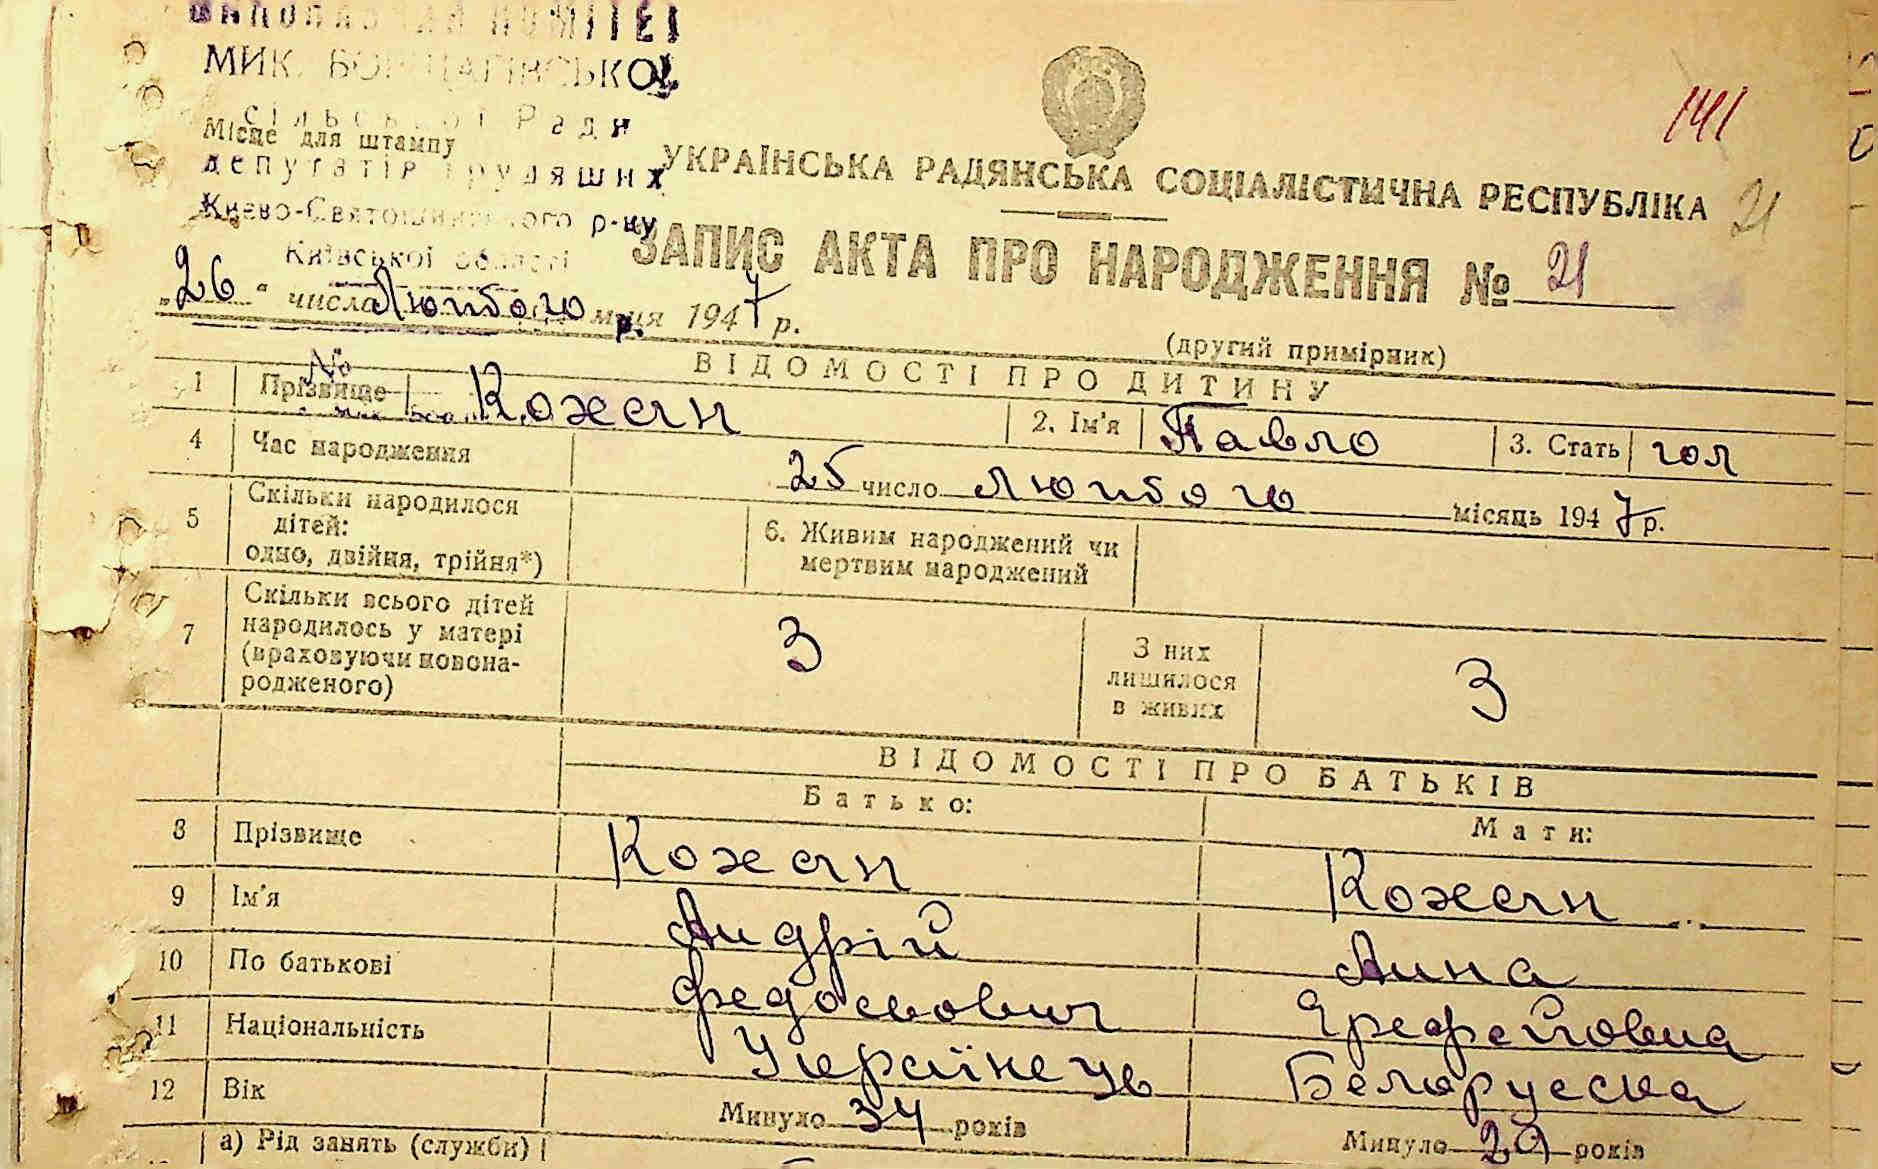 МИК. БОРЩАГІВСЬКОЇ
сільської Ради
Місце для штампу
депутатів трудящих
Києво-Святошинського р-ну
Київської області
141
УКРАЇНСЬКА РАДЯНСЬКА СОЦІАЛІСТИЧНА РЕСПУБЛІКА
21
ЗАПИС АКТА ПРО НАРОДЖЕННЯ № 21
„26“ числа Лютого м-ця 1947 р.
(другий примірник)
ВІДОМОСТІ ПРО ДИТИНУ
№
1 Прізвище Кожан 2. Ім'я Павло 3. Стать чол
4 Час народження 25 число лютого місяць 1947 р.
5 Скільки народилося дітей: одно, двійня, трійня*) 6. Живим народжений чи мертвим народжений
7 Скільки всього дітей народилось у матері (враховуючи новонародженого) 3 З них лишилося в живих 3
ВІДОМОСТІ ПРО БАТЬКІВ
Батько: Мати:
8 Прізвище Кожан Кожан
9 Ім'я Андрій Анна
10 По батькові Федосьович Ерефейовна
11 Національність Українець Белоруська
12 Вік Минуло 34 років Минуло 29 років
а) Рід занять (служби)